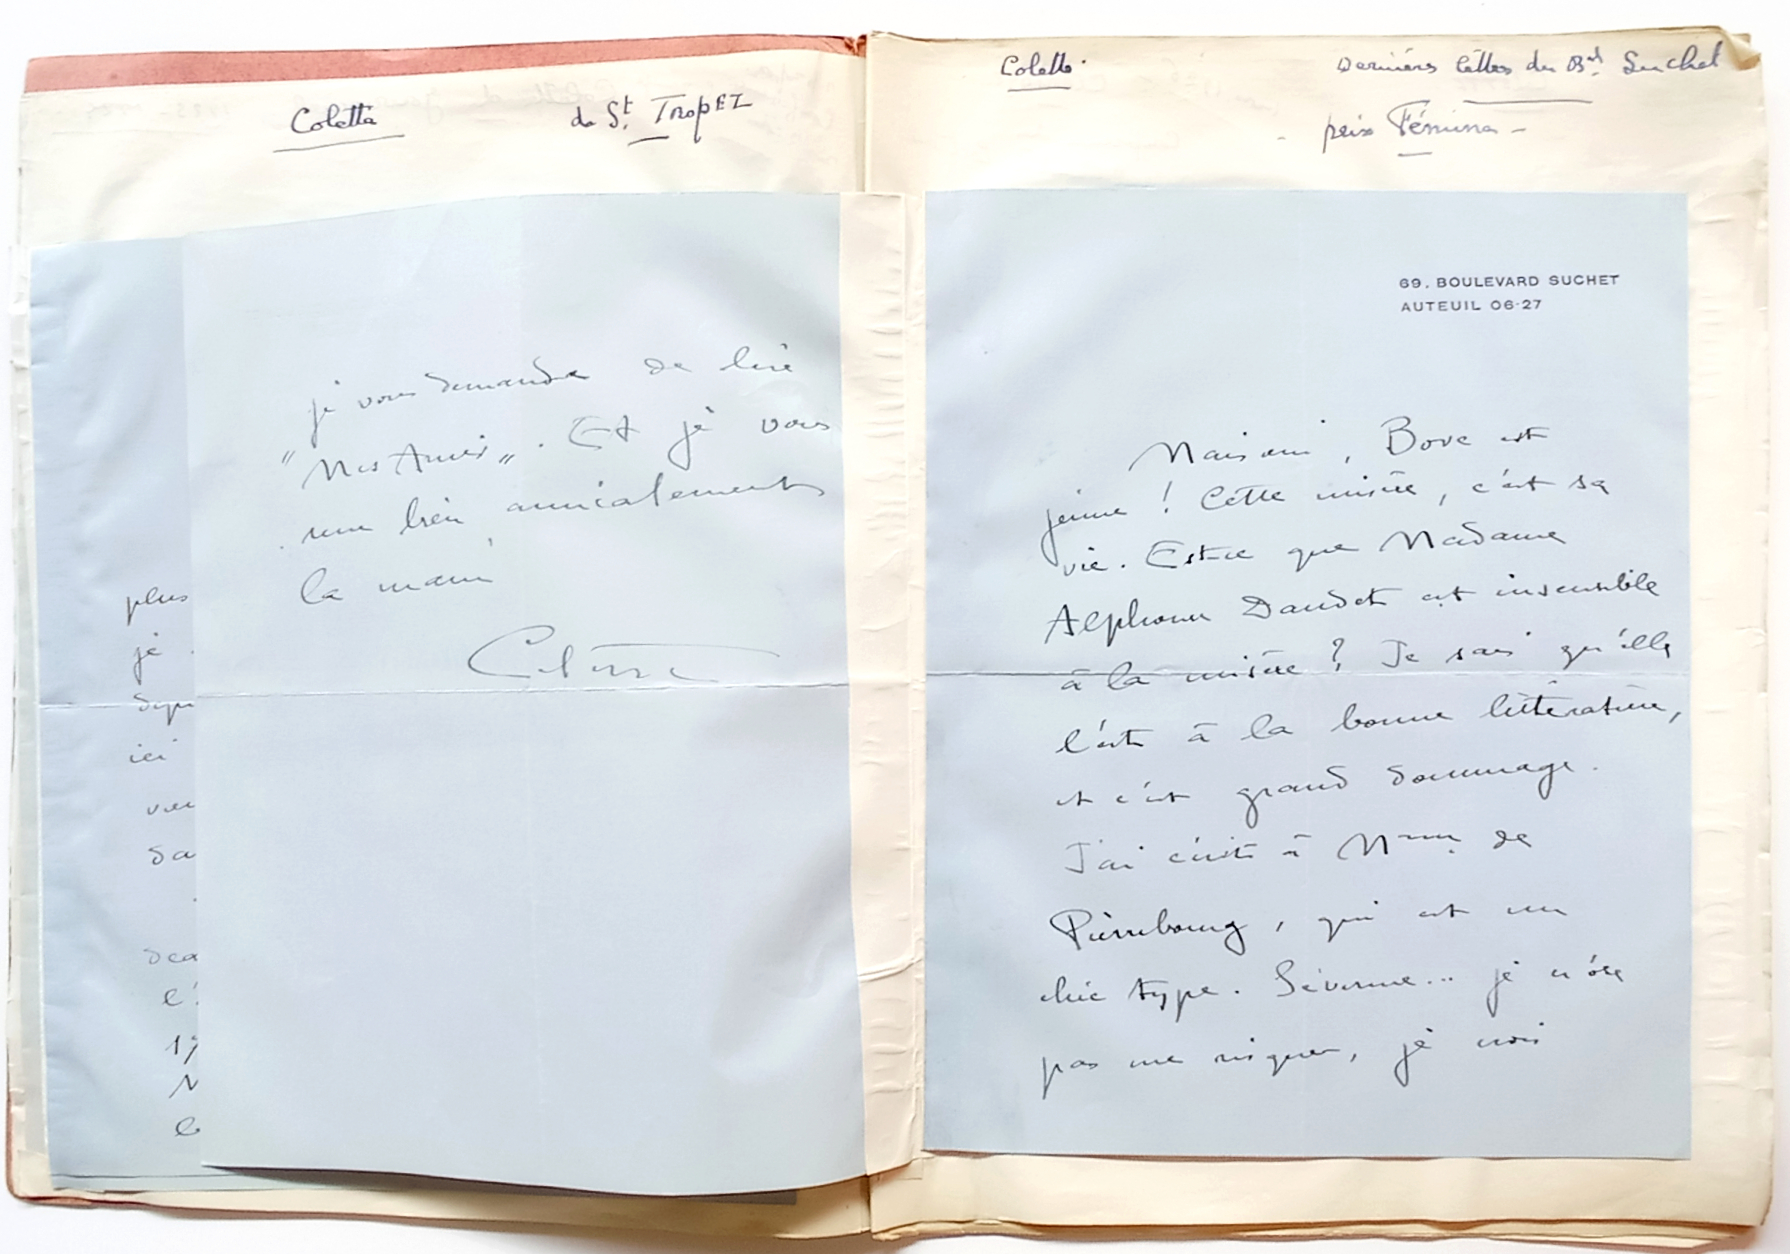 Colette
de St. Tropez
je vous demande de lire
"Mes Amis". Et je vous
serre bien amicalement
la main
Colette
plus
je
depu
ici
vien
da
dea
l'
19
M
e
Colette.
Dernières lettres du Bd Suchet
- prix Fémina -
69, BOULEVARD SUCHET
AUTEUIL 06-27
Mais oui, Bove est
jeune ! Cette misère, c'est sa
vie. Est-ce que Madame
Alphonse Daudet est insensible
à la misère ? Je sais qu'elle
l'est à la bonne littérature,
et c'est grand dommage.
J'ai écrit à Mme de
Pierrebourg, qui est un
chic type. Séverine... je n'ose
pas me risquer, je crois